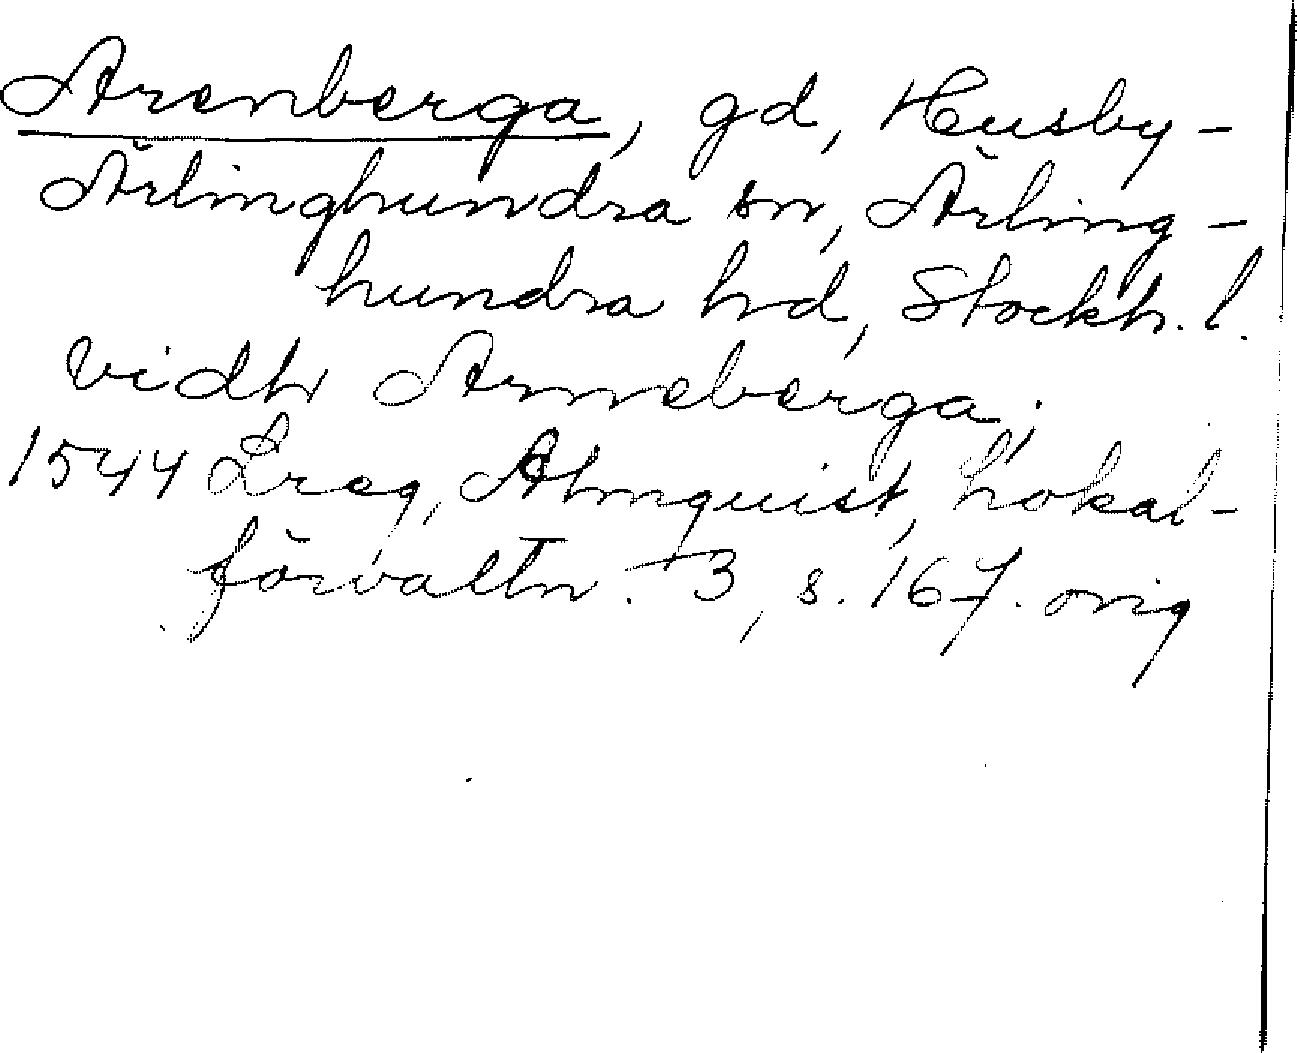 Arenberga, gd, Husby-
Ärlinghundra sn, Ärling-
hundra hd, Stockh. l.
vidh Arneberga;
1544 Lreg, Almquist, Lokal-
förvaltn. 3, s. 167. orig